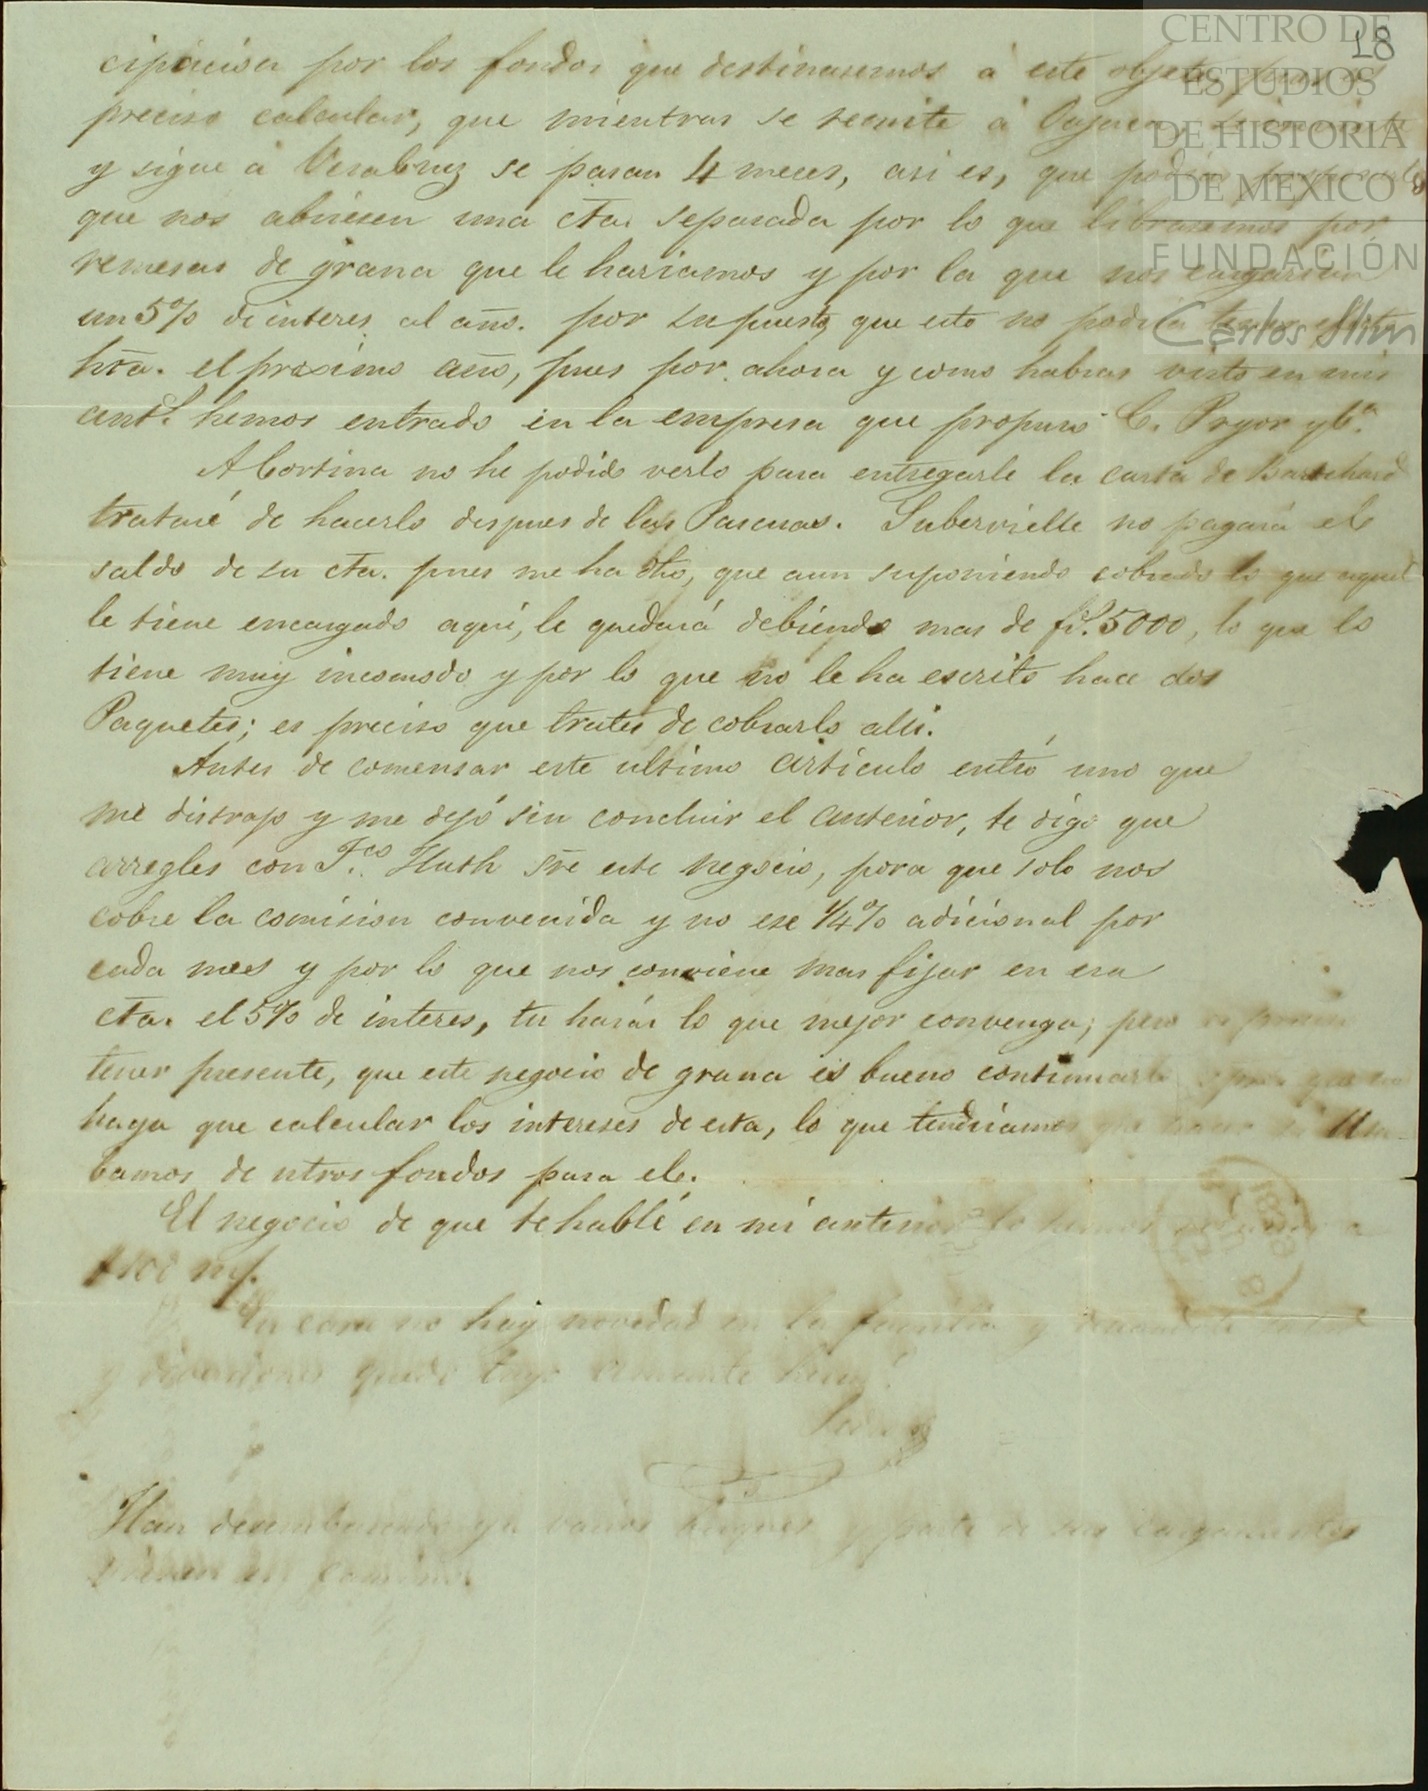 18
CENTRO DE
ESTUDIOS
DE HISTORIA
DE MÉXICO
FUNDACIÓN
Carlos Slim
cipacion por los fondos que destinasemos á este objeto, pues es
preciso calcular, que mientras se remite á Oajaca,
y sigue á Veracruz se pasan 4 meces, asi es, que podias
que nos abriesen una cta. separada por lo que librasemos por
remesas de grana que le hariamos y por la que nos cargarian
un 5% de interes al año. por supuesto, que esto no podria tener efecto
hta. el proximo año, pues por ahora y como habras visto en mis
ants. hemos entrado en la empresa que propuso C. Pryor y Ca.
A Cortina no he podido verlo para entregarle la carta de
trataré de hacerlo despues de las Pascuas. Subervielle no pagará el
saldo de su cta. pues me ha dho, que aun suponiendo cobrado lo que aquel
le tiene encargado aquí, le quedará debiendo mas de 5000, lo que lo
tiene muy incomodo y por lo que no le ha escrito hace dos
Paquetes; es preciso que trates de cobrarlo alli.
Antes de comensar este ultimo articulo entró uno que
me distrajo y me dejó sin concluir el anterior, te digo que
arregles con Fco. Huth sre este negocio, para que solo nos
cobre la comision convenida y no ese 1/4% adicional por
cada mes y por lo que nos conviene mas fijar en esa
cta. el 5% de interes, tu harás lo que mejor convenga; pero es preciso
tener presente, que este negocio de grana es bueno continuarlo
haya que calcular los intereses de esta, lo que tendriamos que hacer si
bamos de ntros fondos para el.
El negocio de que te hablé en mi anterior lo hemos
En casa no hay novedad en la familia y deseandote salud
y diversiones quedo tuyo amante herm.
Han desembarcado ya varios buques y parte de sus cargamentos